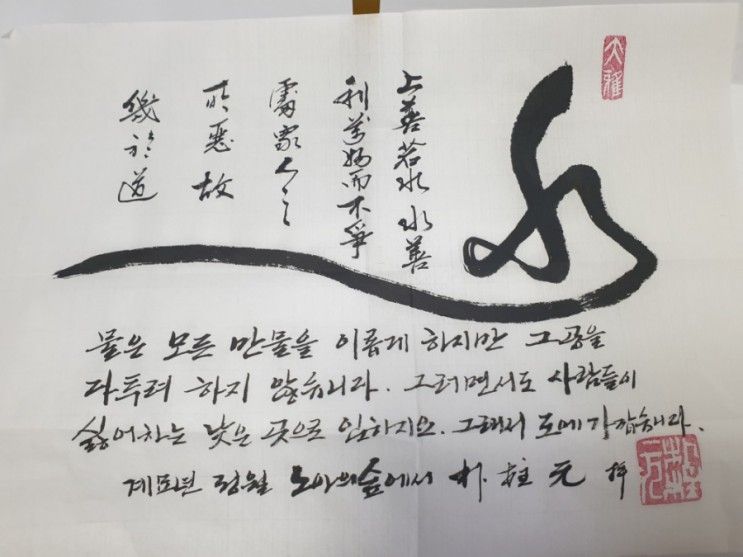 水
上善若水 水善
利萬物而不爭
處衆人之
所惡 故
幾於道
물은 모든 만물을 이롭게 하지만 그 공을
다투려 하지 않습니다. 그러면서도 사람들이
싫어하는 낮은 곳으로 임하지요. 그래서 도에 가깝습니다.
계묘년 정월 노아의숲에서 朴柱元 拜